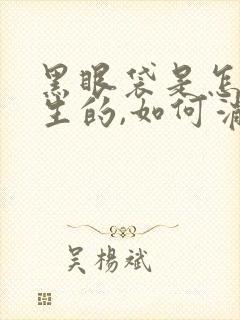 黑眼袋是怎
生的,如何消
吴楊斌